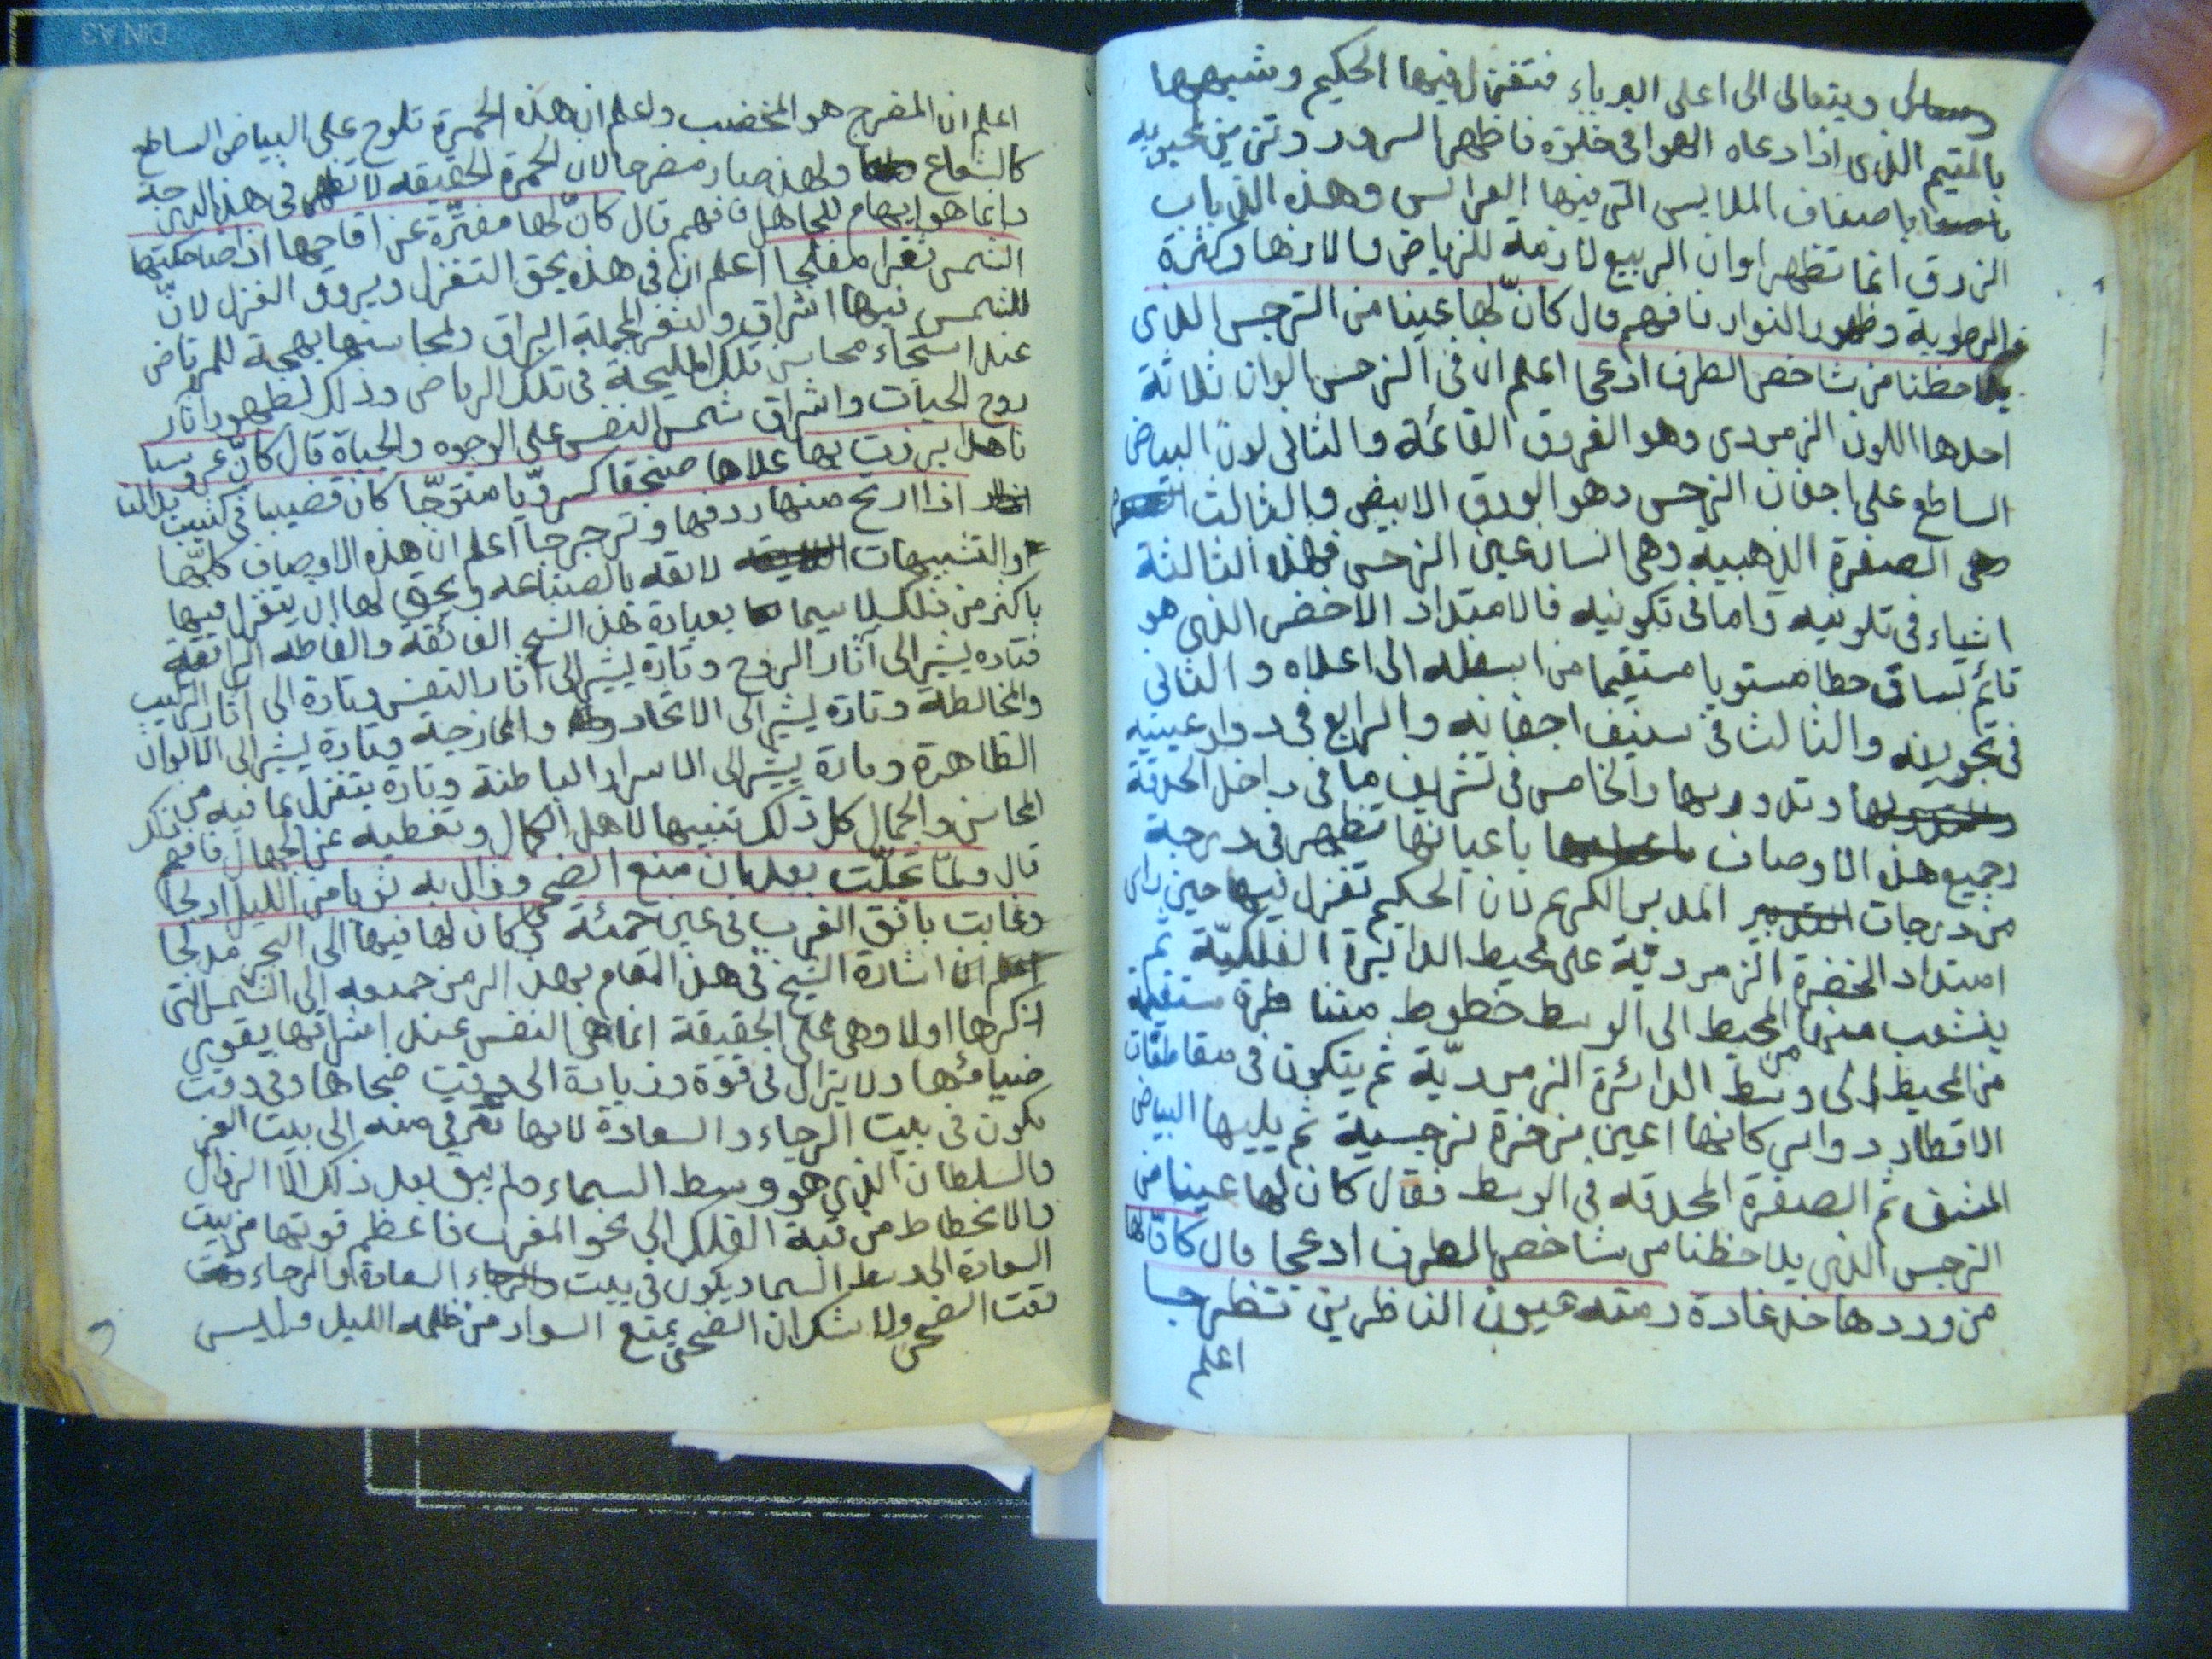 ويتعالى الى اعلى البرباء فتغزل فيها الحكيم وشبهها
بالمقيم الذى اذا دعاه الهوا فى خلوة فاظهر السرور وتزين لمحبوبه
باصناف الملابس التى فيها العرائس وهذه الثياب
الزرق انما تظهر اوان الربيع لازمة للرياض والازهار وكثرة
الرطوبة وظهور النوار فافهم قال كانّ لها عينا من النرجس الذى
يلاحظنا من شاخص الطرف ادعجا اعلم ان فى النرجس الوان ثلاثة
احدها اللون الزمردى وهو العروق القائمة والثانى لون البياض
الساطع على اجفان النرجس وهو الورق الابيض والثالث
هى الصفرة الذهبية وهى انسان عين النرجس فهذه الثالثة
اشياء فى تلوينه واما فى تكوينه فالامتداد الاخضر الذى هو
قائم بساق خطا مستويا مستقيما من اسفله الى اعلاه والثانى
فى تجويفه والثالث فى اجفانه والرابع فى دوار عينيه
وتدويرها والخامس فى تشريف ما فى داخل الحدقة
وجميع هذه الاوصاف باعيانها تظهر فى درجة
من درجات المدبر الكريم لان الحكيم تغزل فيها حين راى
امتداد الخضرة الزمرديّة على محيط الدايرة الفلكيّة ثم
ينشعب من المحيط الى الوسط خطوط متناظرة مستقيمة
من المحيط الى وسط الدائرة الزمرديّة ثم يتكون فى متقاطعات
الاقطار دوائر كانها اعين مزخرفة نرجسية ثم يليها البياض
ثم الصفرة المحدقه فى الوسط فقال كان لها عينا من
النرجس الذى يلاحظنا من شاخص الطرف ادعجا قال كانّ لها
من وردها خد غادة رمته عيون الناظرين تضرجا
اعلم
اعلم ان المضرج هو المخضب واعلم ان هذه الحمرة تلوح على البياض الساطع
كالشعاع ولهذا صار مضرجا لان الحمرة الحقيقه لا تظهر فى هذه الدرجة
وانما هو ايهام للجاهل فافهم قال كانّ لها مفترّة عن اقاحها اذ ضاحكتها
الشمس ثغرا مفلجا اعلم ان فى هذه يحق التغزل ويروق الغزل لانّ
للشمس فيها اشراق والثغر المجملة البراق ولمحاسنها بهجة للمرتاض
عند محاسن تلك المليحة فى تلك الرياض وذلك لظهور آثار
روح الحيات واشراق شمس النفس على الوجوه والحياة قال كانّ عروسا
ناهدا برزت بها علاها كسرويّا متوّجا كان قضيبا فى كثيب بدا لنا
اذا ارتج منها ردفها وترجرجا اعلم ان هذه الاوصاف كلّها
والتشبيهات لائقه بالصناعه ويحق لها ان يتغزل فيها
باكثر من ذلك لاسيما بعبارة هذا الشيخ الفائقة والفاظه الرائقة
فتاره يشير الى آثار الروح وتارة يشير الى آثار النفس وتارة الى آثار التركيب
والمخالطة وتارة يشير الى الاتحاد والممازجة وتارة يشير الى الالوان
الظاهرة وتارة يشير الى الاسرار الباطنة وتارة يتغزل بما فيه من ذكر
المحاسن والجمال كل ذلك تنبيها لاهل الكمال وتغطية عن الجهال فافهم
قال ولمّا تجلّت بعد ان متع الضحى وزال به ثوبا من الليل ادلجا
وغابت بافق الغرب فى عين حمئة وكان لها فيها الى البحر مدلجا
اعلم ان اشارة الشيخ فى هذا المقام بهذا الرمز جميعه الى الشمس التى
ذكرها اولا وهى على الحقيقة انما هى النفس عند اشراقها يقوى
ضياؤها ولا يزال فى قوة وزيادة الى وقت ضحاها وفى وقت
يكون فى بيت الرجاء والسعادة لانها تترقى منه الى بيت العز
والسلطان الذى هو وسط السماء ولم يبق بعد ذلك الّا الزوال
والانحطاط من قبة الفلك الى نحو المغرب فاعظم قوتها من بيت
السعادة الى وسط السما ويكون فى بيت السعادة والرجاء وقت
وقت الضحى ولا شك ان الضحى يمتع السواد من ظلمه الليل وليس